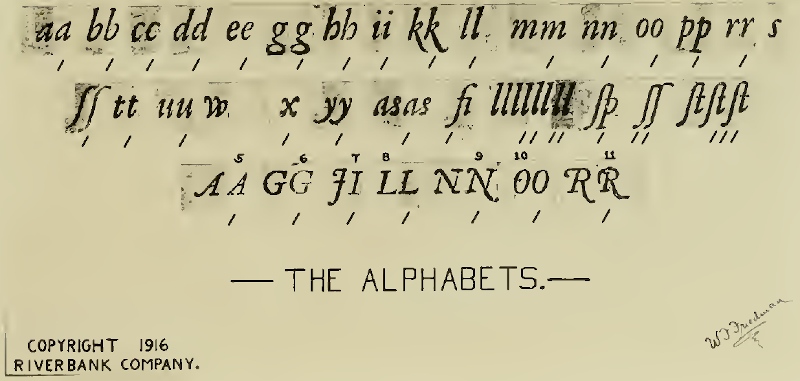 aa bb cc dd ee gg hh ii kk ll mm nn oo pp rr s
ſſ tt uu w x yy asas fi llllllll ſp ſſ ſtſtſt
5 6 7 8 9 10 11
AA GG JI LL NN OO RR
THE ALPHABETS.
COPYRIGHT 1916
RIVERBANK COMPANY.
W F Friedman